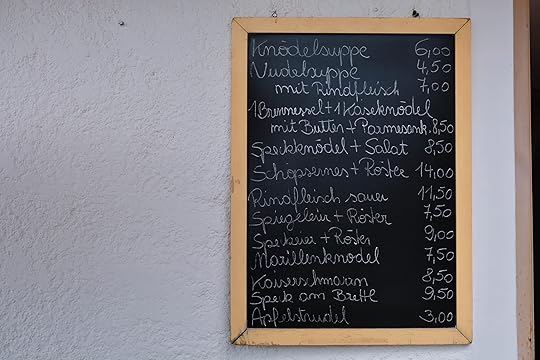 Knödelsuppe 6,00
Nudelsuppe 4,50
mit Rindfleisch 7,00
1 Brennessel + 1 Käseknödel
mit Butter + Parmesank. 8,50
Speckknödel + Salat 8,50
Schöpsernes + Röster 14,00
Rindfleisch sauer 11,50
Spiegeleier + Röster 7,50
Speckeier + Röster 9,00
Marillenknödel 7,50
Kaiserschmarrn 8,50
Speck am Brettl 9,50
Apfelstrudel 3,00